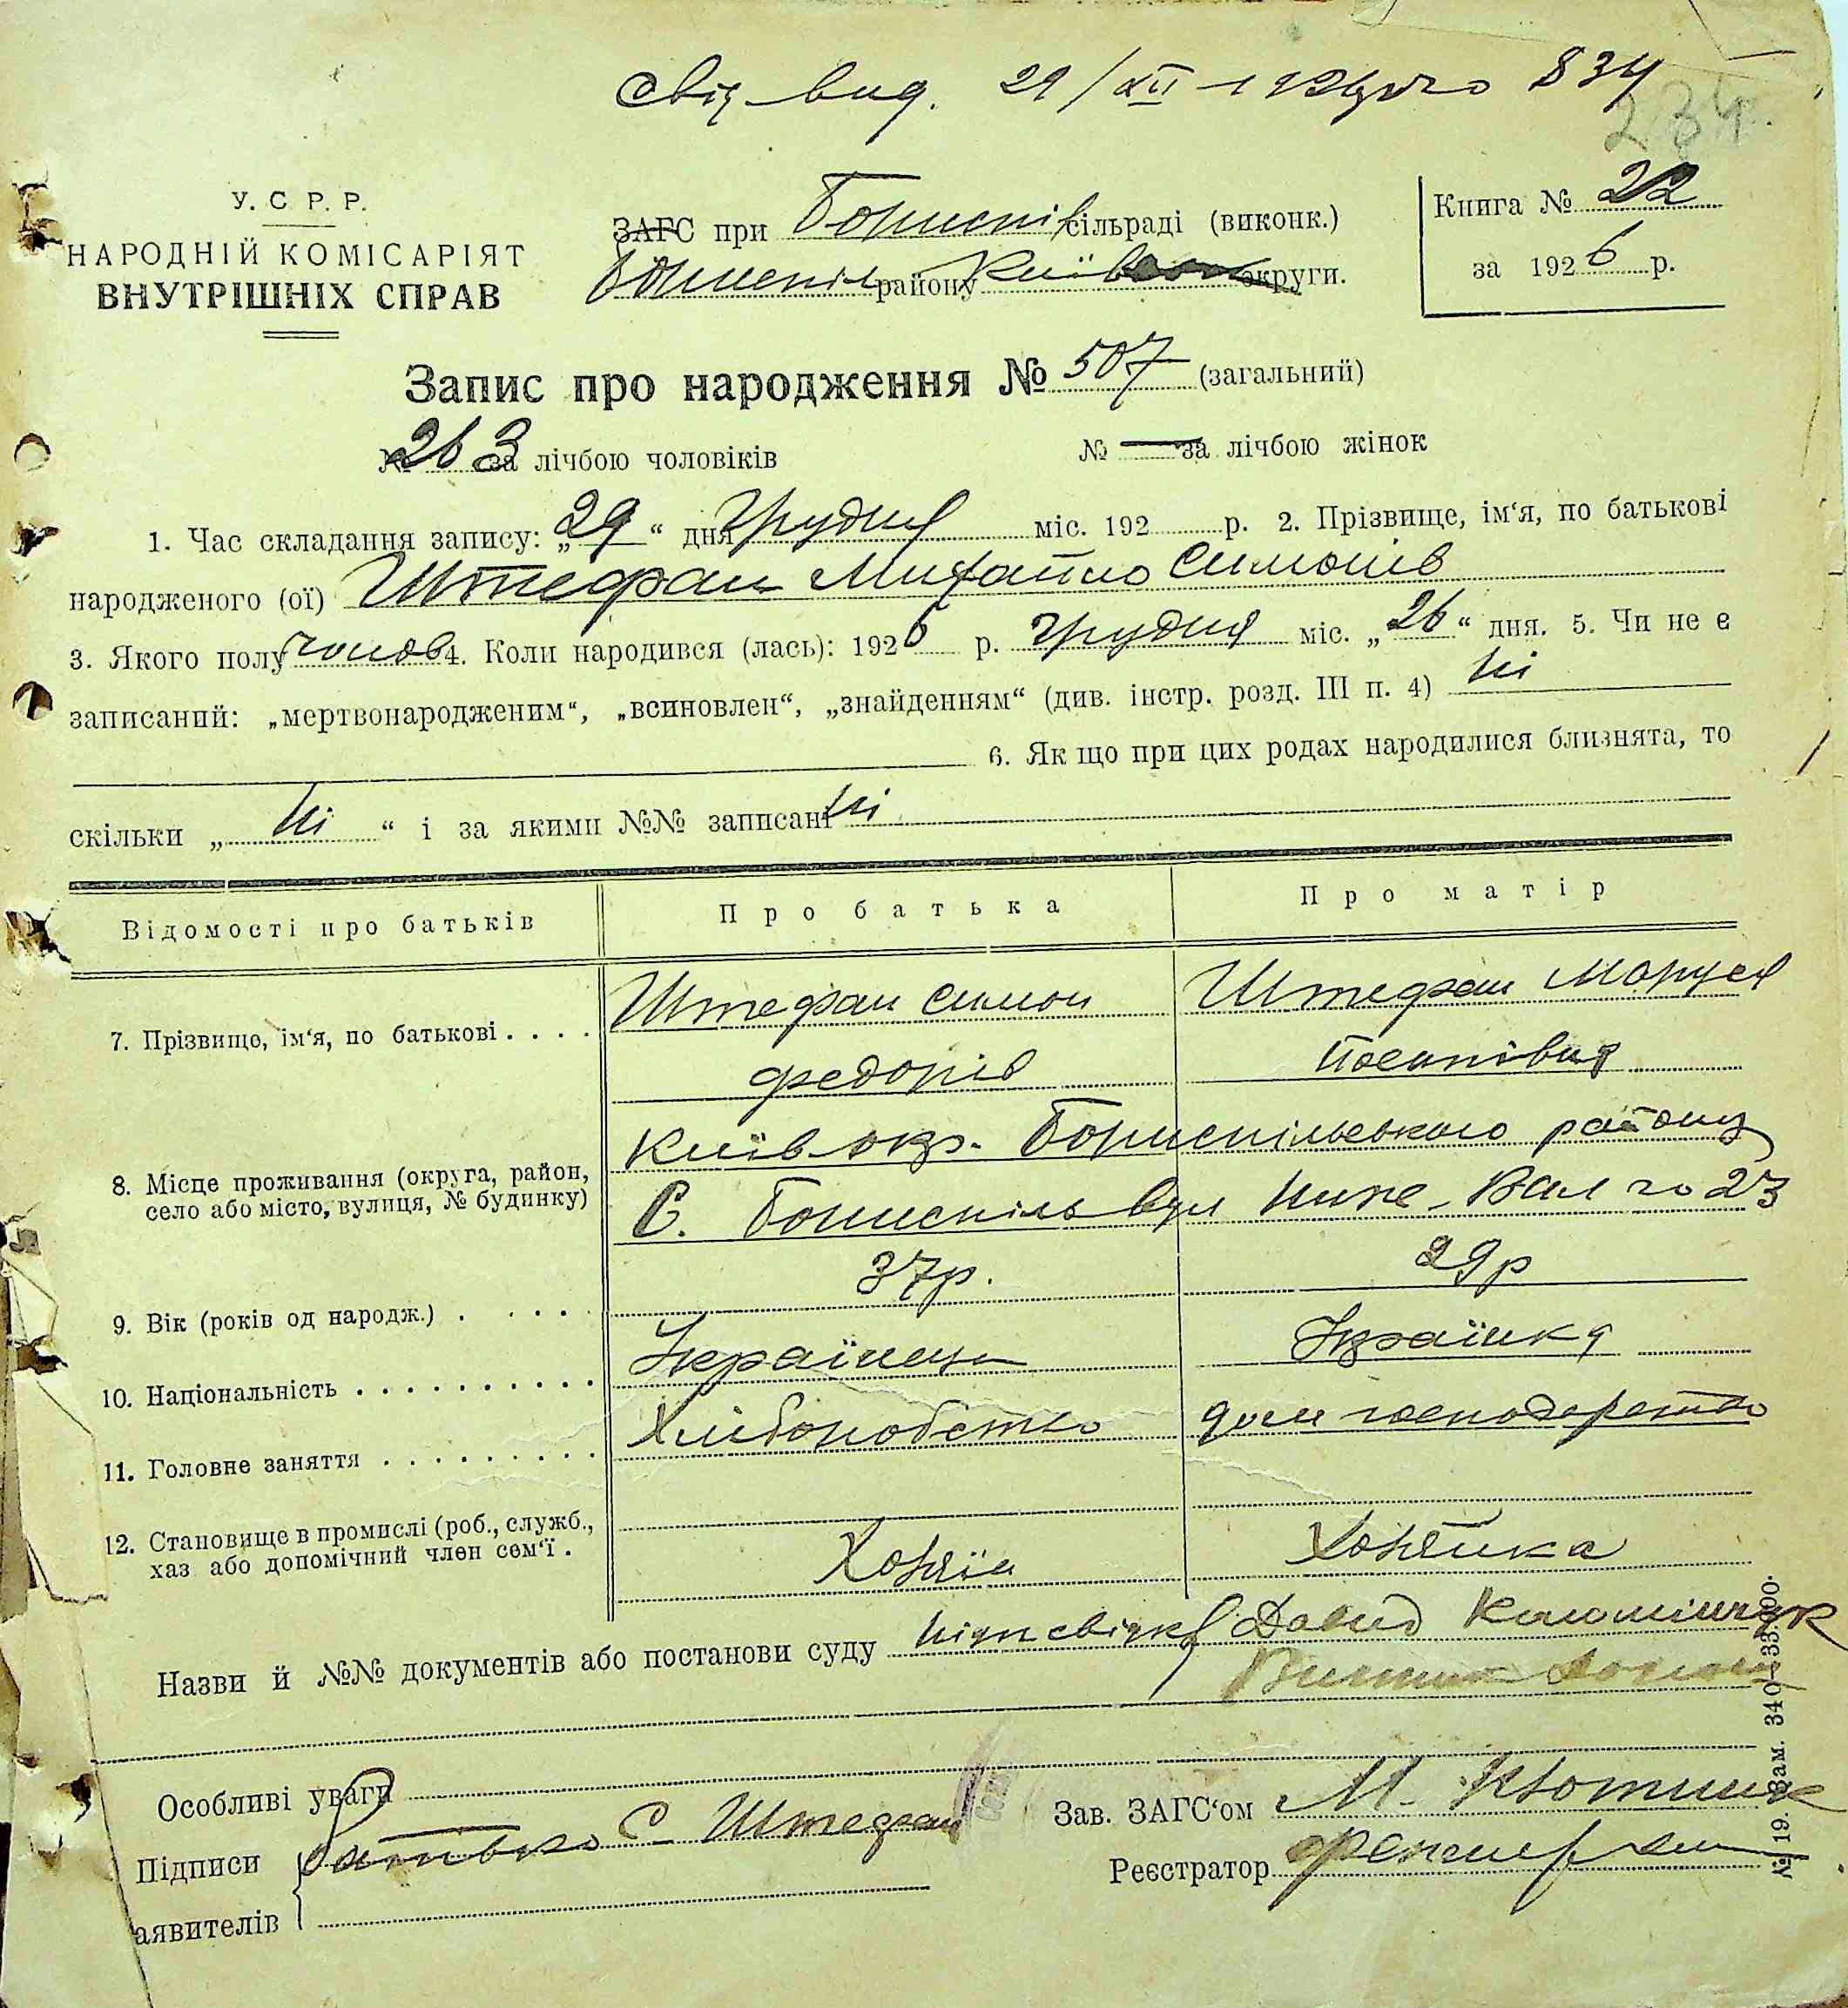 Свід. вид. 29/XII 834
234.
У. С. Р. Р.
НАРОДНІЙ КОМІСАРІЯТ
ВНУТРІШНІХ СПРАВ
ЗАГС при Бориспіл сільраді (виконк.)
Бориспіл району Київськ округи.
Книга № 22
за 1926 р.
Запис про народження № 507 (загальний)
№ 263 за лічбою чоловіків № — за лічбою жінок
1. Час складання запису: „29“ дня Грудня міс. 192 р. 2. Прізвище, ім‘я, по батькові
народженого (ої) Штефан Михайло Симонів
3. Якого полу чолов 4. Коли народився (лась): 1926 р. Грудня міс. „26“ дня. 5. Чи не є
записаний: „мертвонародженим“, „всиновлен“, „знайденням“ (див. інстр. розд. III п. 4) Ні
6. Як що при цих родах народилися близнята, то
скільки „ Ні “ і за якими №№ записані Ні
Відомості про батьків Про батька Про матір
7. Прізвище, ім‘я, по батькові . . . . Штефан Симон Штефан Маруся
Федорів Йосипівна
Київ окр. Бориспільського району
8. Місце проживання (округа, район,
село або місто, вулиця, № будинку) С. Бориспіль вул Ниже-Вал 23
9. Вік (років од народж.) . . . . . 37р. 29р
10. Національність . . . . . . . . . . Українець Українка
11. Головне заняття . . . . . . . . . Хліборобство дом господарство
12. Становище в промислі (роб., служб.,
хаз або допомічний член сем‘ї . Хозяїн Хозяйка
Назви й №№ документів або постанови суду Підп свідків Давид
Особливі уваги
Підписи Батько С Штефан
аявителів
Зав. ЗАГС‘ом М.
Реєстратор
№ 19. Зам. 340—33.000.